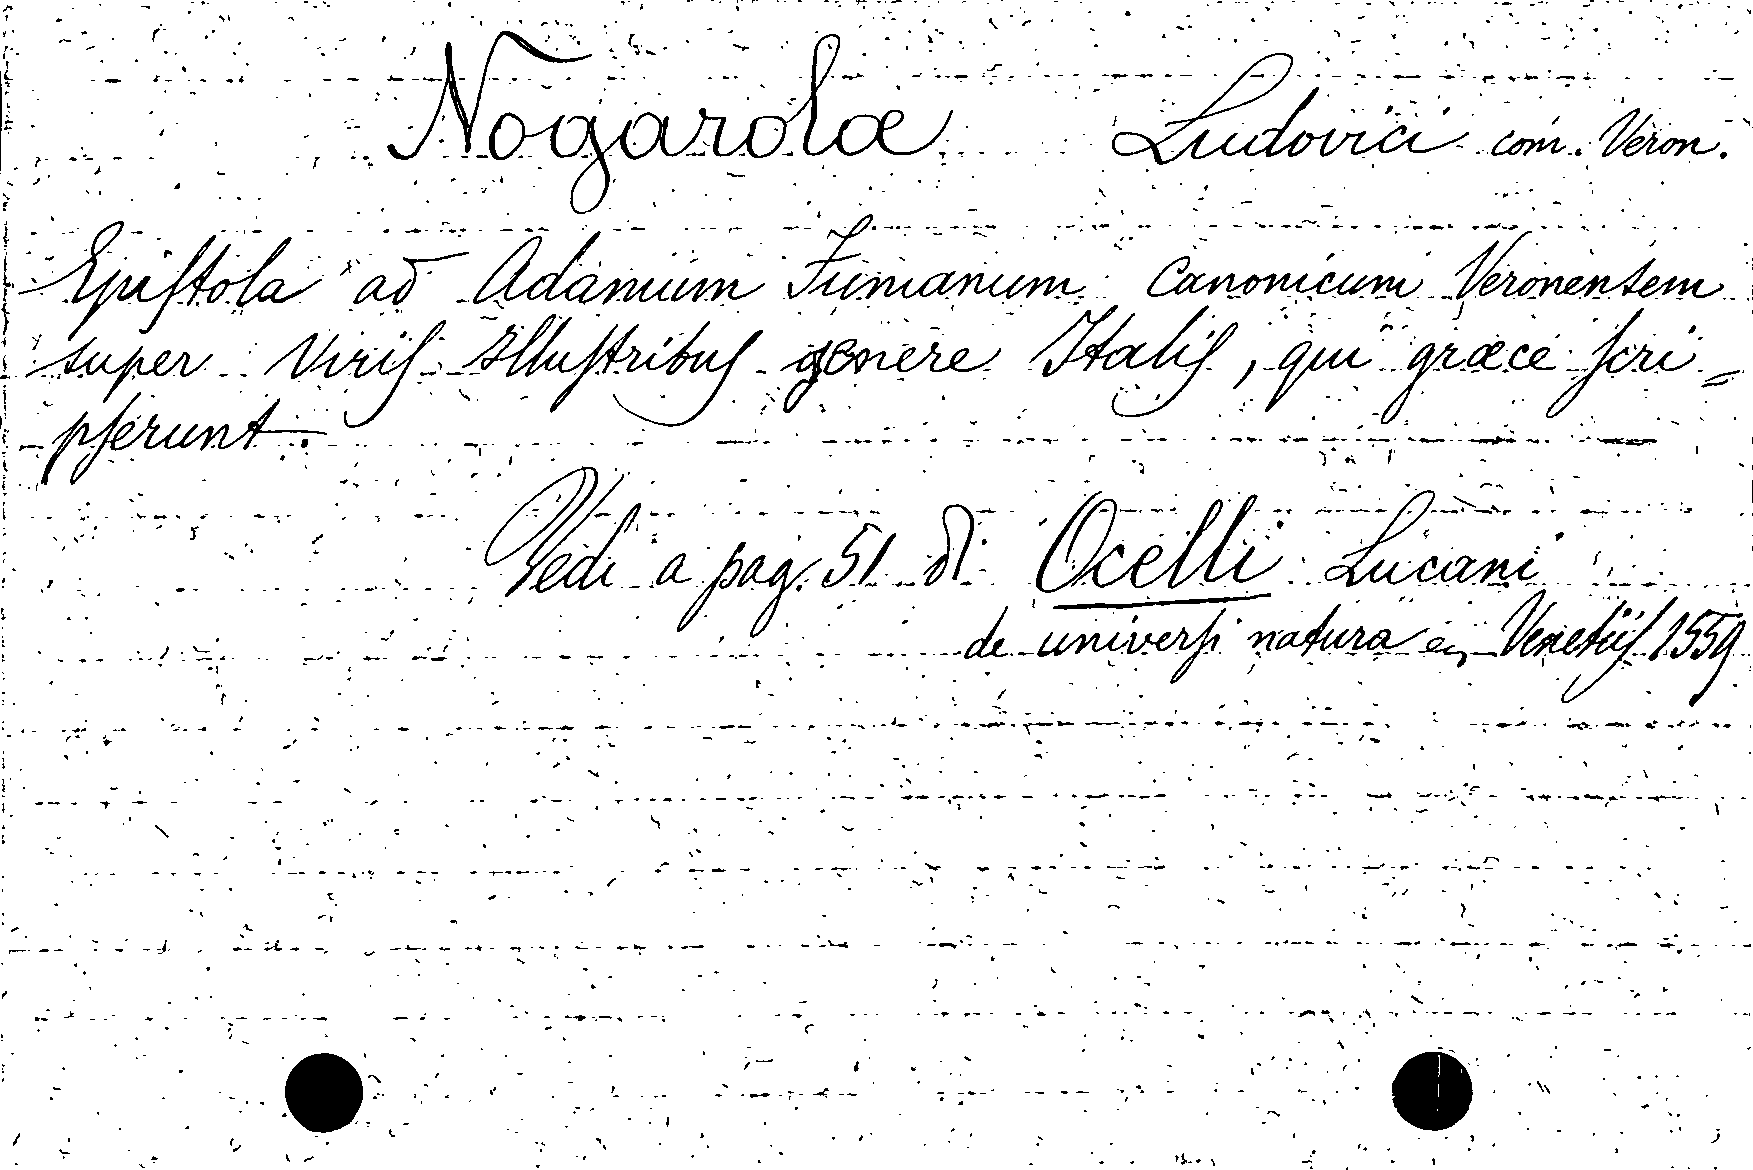 Nogarolæ Ludovici com. Veron.
Epiſtola ad Adamum Fumanum Canonicum Veronensem
super Viriſ Illuſtribuſ genere Italiſ, qui græce ſcri=
pſerunt.
Vedi a pag. 51 di Ocelli Lucani
de univerſi natura Venetiiſ 1559